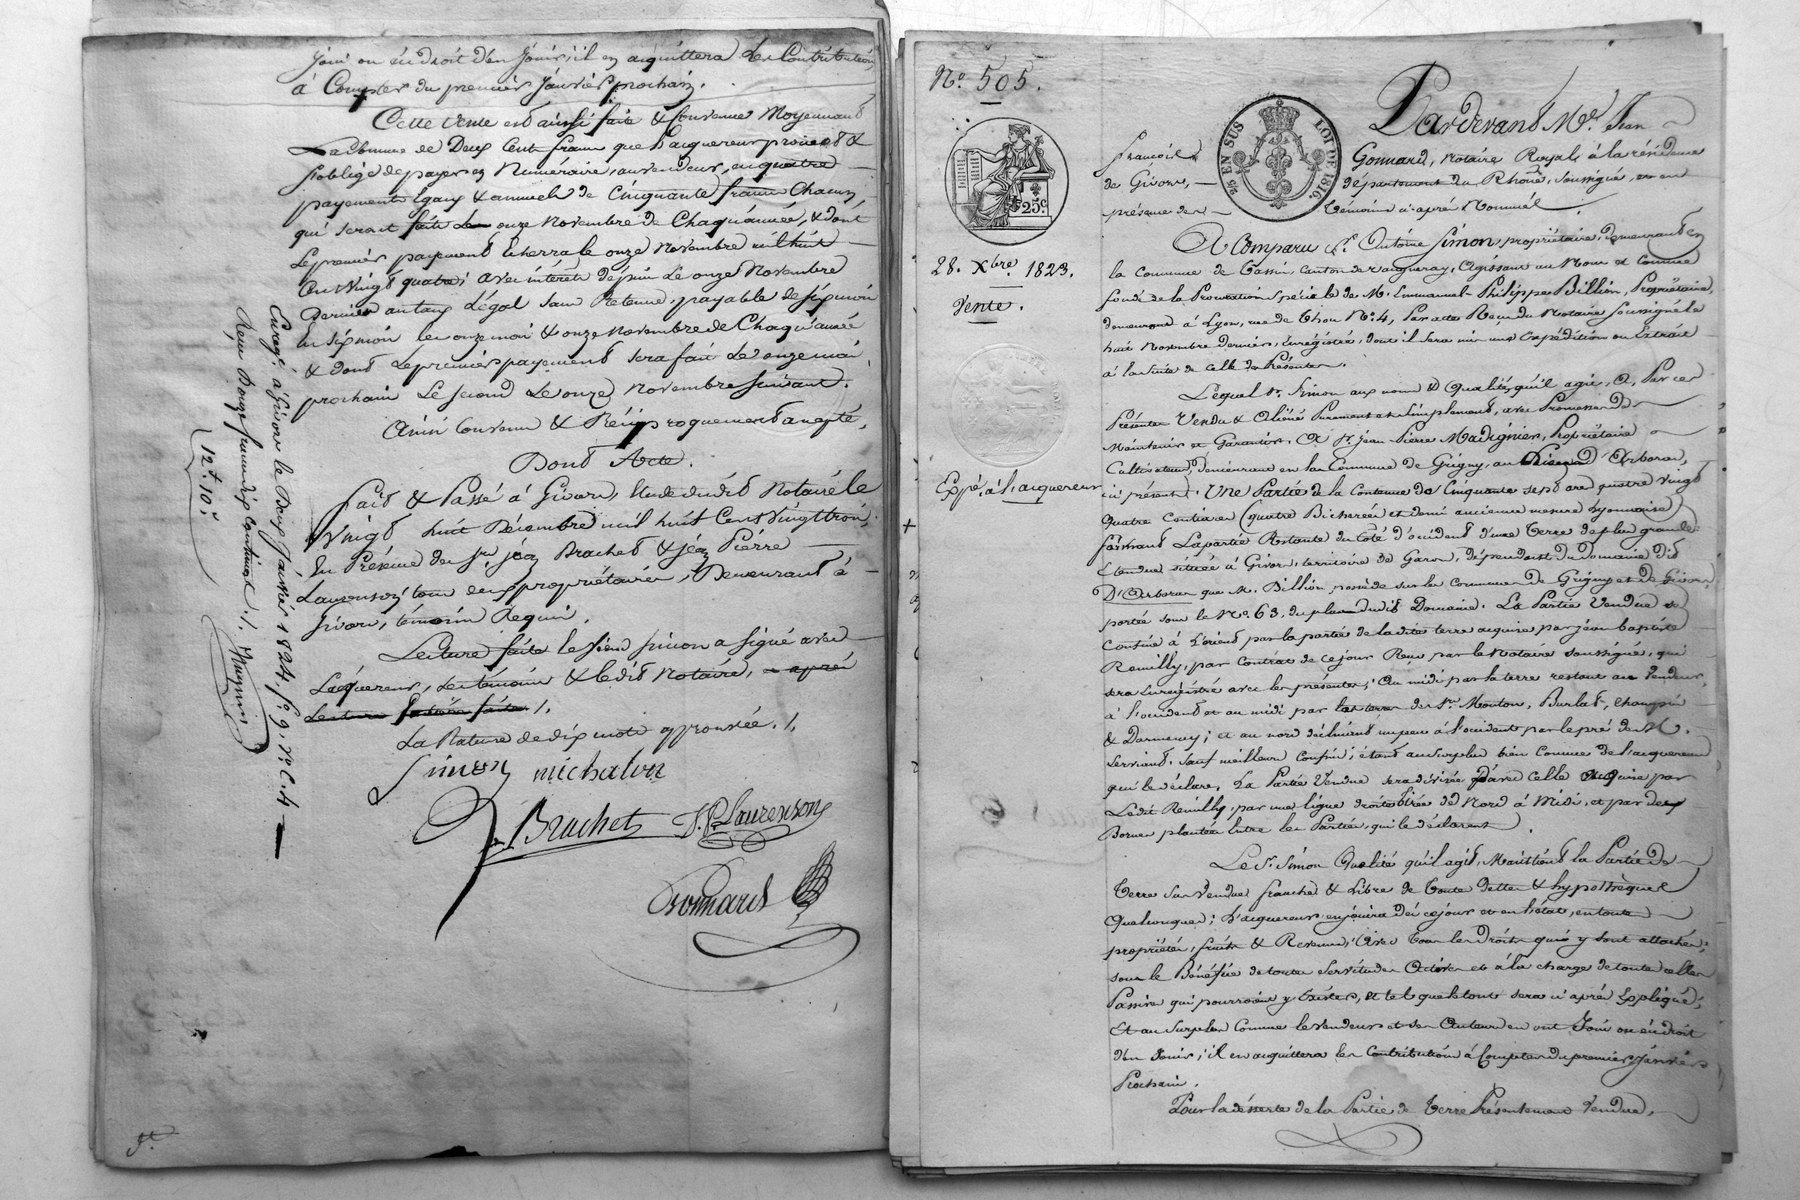 joui ou eu droit d'en jouir, il en acquittera les Contributions
à Compter du premier Janvier prochain.
Cette vente est aussi faite & Convenue Moyennant
La Somme de Deux Cents francs que L'acquereur promet &
s'oblige de payer en Numéraire, au vendeur, en quatre
payements Egaux & annuels de Cinquante francs Chacun,
qui seront faits Le onze Novembre de Chaque année, & dont
Le premier payement Echerra le onze Novembre mil huit
Cent Vingt quatre; avec intérêts depuis Le onze Novembre
Dernier au taux Légal sans Retenue, payables de six mois
En six mois les onze mai & onze Novembre de Chaque année
& dont Le premier payement sera fait Le onze mai
prochain Le second Le onze Novembre suivant.
Ainsi Convenu & Réciproquement accepté,
Dont Acte.
Fait & Passé à Givors, Etude dudit Notaire le
Vingt huit Décembre mil huit Cent Vingt trois.
En Présence des Srs. jean Brachet & jean Pierre
Laurenson, tous deux propriétaires, Demeurant à
Givors, témoins Requis.
Lecture faite le sieur Simon a signé avec
L'acquereur, Les témoins & ledit Notaire, après
Lecture faite /.
La Rature de dix mots approuvée. /.
Simon michalon
Brachet J. P. Laurenson
Gonnard
Enregé. à Givors le Deux Janvier 1824, fo. 9, Vo. C. 4
Reçu Douze francs dix centimes /.
12f. 10c.
No. 505.
25 c.
28. Xbre. 1823.
Vente.
Expé. à l'acquereur
25 EN SUS
LOI DE 1816.
Pardevant Me. Jean
Francois Gonnard, Notaire Royal, à la résidence
de Givors, département du Rhône, soussigné, et en
présence des témoins ci-après Nommés
A Comparu Sr. Antoine Simon, propriétaire, demeurant en
la Commune de Tassin, Canton de Vaugneray, Agissant au Nom et Comme
fondé de la Procuration Spéciale de M. Emmanuel-Philippe Billion, Propriétaire,
demeurant à Lyon, rue de Thou No. 4, Par acte Reçu du Notaire soussigné le
huit Novembre dernier, Enregistré, dont il sera mis une Expédition ou Extrait
à la suite de Celle des Présentes.
Lequel Sr. Simon aux noms & Qualités, qu'il agit, A, Par ces
Présentes Vendu & Aliéné Purement et Simplement, avec Promesse de
Maintenir et Garantir, A Sr. Jean Pierre Madignier, Propriétaire
Cultivateur, demeurant en la Commune de Grigny, au d'Arboras,
ici présent; Une Partie de la Contenue de Cinquante sept ares quatre vingt
quatre Centiares (quatre Bicherées et demi ancienne mesure Lyonnaise)
faisant La partie Restante du Côté d'occident d'une Terre de plus grande
Etendue située à Givors, territoire de Garon, dépendant du Domaine dit
D'Arboras que M. Billion possède sur les Communes de Grigny et de Givors,
portée sous le No. 63, du plan dudit Domaine. La Partie Vendue se
Confine à L'orient par la partie de ladite terre acquise par jean baptiste
Remilly, par Contrat de ce jour Reçu par le Notaire soussigné, qui
sera Enregistré avec les présentes; Au midi par la terre restant au Vendeur,
à l'occident et au midi par les terres des Srs. Mouton, Burlat, Champin
& Darmency; et au nord déclinant un peu à l'occident par le pré de M.
Servant. Sauf meilleurs Confins; étant au surplus bien Connue de l'acquereur
qui le déclare. La Partie Vendue sera divisée d'avec Celle acquise par
Ledit Remilly, par une ligne droite tirée de Nord à Midi, et par deux
Bornes plantées Entre les Parties, qui le déclarent.
Le Sr. Simon Qualité qu'il agit, Maintient la Partie de
Terre sus Vendue franche & Libre de toutes dettes & hypothèques
Quelconques; L'acquereur en jouira dès ce jour et en l'état, en toute
propriété, fruits & Revenus, Avec tous les Droits qui y sont attachés;
sous le Bénéfice de toutes Servitudes Actives et à la charge de toutes celles
Passives qui pourroient y Exister, et tel que le tout sera ci après Expliqué;
Et au surplus Comme le vendeur et ses Auteurs en ont Joui ou eu droit
d'en Jouir; il en acquittera les Contributions à Compter du premier Janvier
Prochain.
Pour la déserte de la Partie de Terre Présentement Vendue,